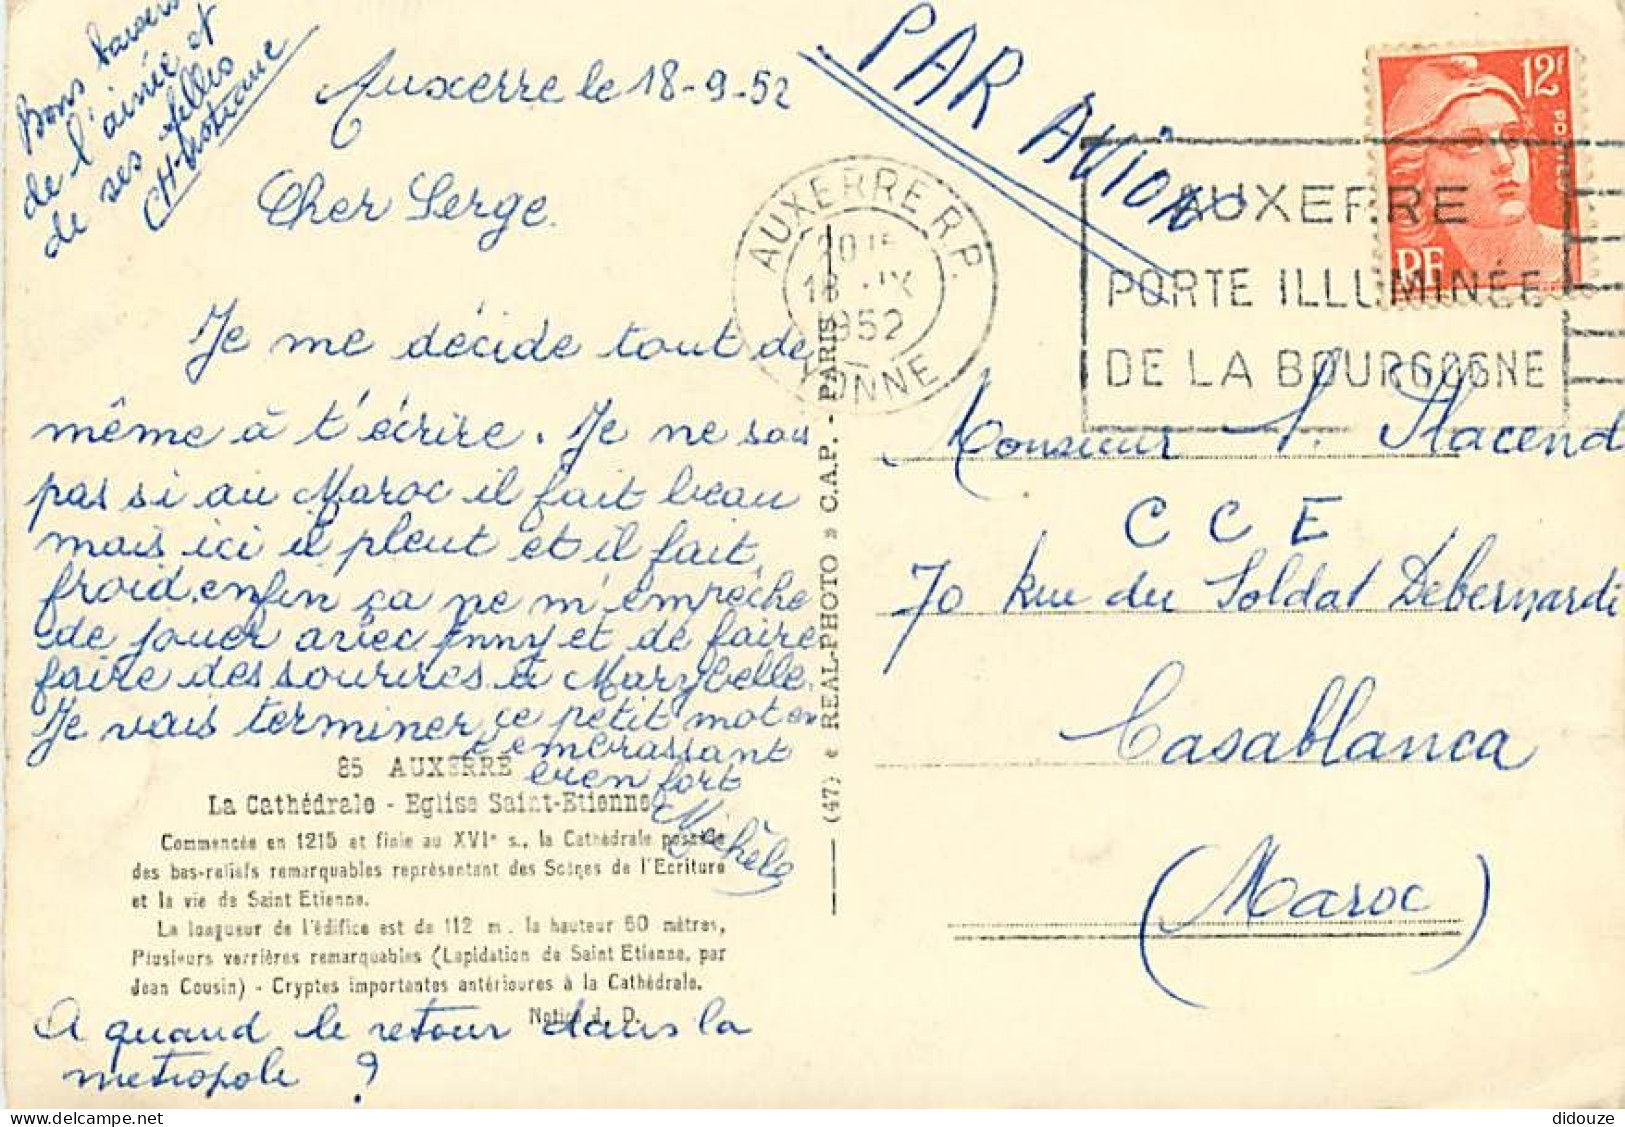 Bons baisers
de l'ainée et
de ses filles
CHristiane
Auxerre le 18-9-52
PAR AVION
Cher Serge.
Je me décide tout de
même à t'écrire. Je ne sais
pas si au Maroc il fait beau
mais ici il pleut et il fait
froid. enfin ça ne m'empêche
de jouer avec Anny et de faire
faire des sourires à Marybelle.
Je vais terminer ce petit mot en
t'embrassant
bien fort
Michèle
85 AUXERRE
La Cathédrale - Eglise Saint-Etienne
Commencée en 1215 et finie au XVIe s., la Cathédrale possède
des bas-reliefs remarquables représentant des Scènes de l'Ecriture
et la vie de Saint Etienne.
La longueur de l'édifice est de 112 m. la hauteur 50 mètres,
Plusieurs verrières remarquables (Lapidation de Saint Etienne, par
Jean Cousin) - Cryptes importantes antérieures à la Cathédrale.
Notice J. D.
A quand le retour dans la
metropole ?
(47) « REAL-PHOTO » C.A.P. - PARIS
AUXERRE R.P.
18 - IX
1952
YONNE
12F
POSTES
RF
AUXERRE
PORTE ILLUMINÉE
DE LA BOURGOGNE
Monsieur S.
C C E
70 Rue du Soldat Debernardi
Casablanca
(Maroc)
didouze